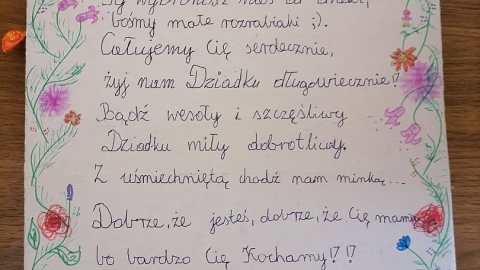 bośmy małe rozrabiaki ;).
Całujemy Cię serdecznie,
żyj nam Dziadku długowiecznie!!
Bądź wesoły i szczęśliwy
Dziadku miły dobrotliwy.
Z uśmiechniętą chodź nam minką...
Dobrze, że jesteś, dobrze, że Cię mamy
bo bardzo Cię Kochamy!!!